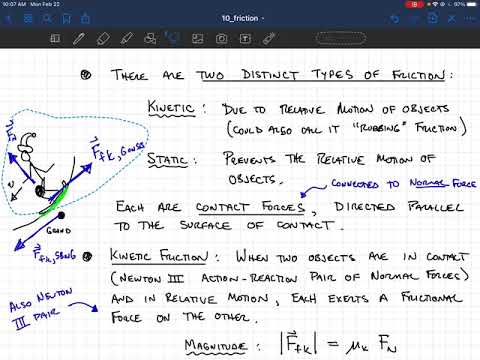 10:07 AM Mon Feb 22
97%
10_friction
There are two distinct types of friction:
Kinetic: Due to relative motion of objects
(could also call it "rubbing" friction)
Static: Prevents the relative motion of
objects.
connected to normal force
Each are contact forces, directed parallel
to the surface of contact.
Kinetic Friction: When two objects are in contact
(Newton III action-reaction pair of normal forces)
and in relative motion, each exerts a frictional
force on the other.
Also Newton
III pair
Magnitude: |F⃗fk| = μk FN
v